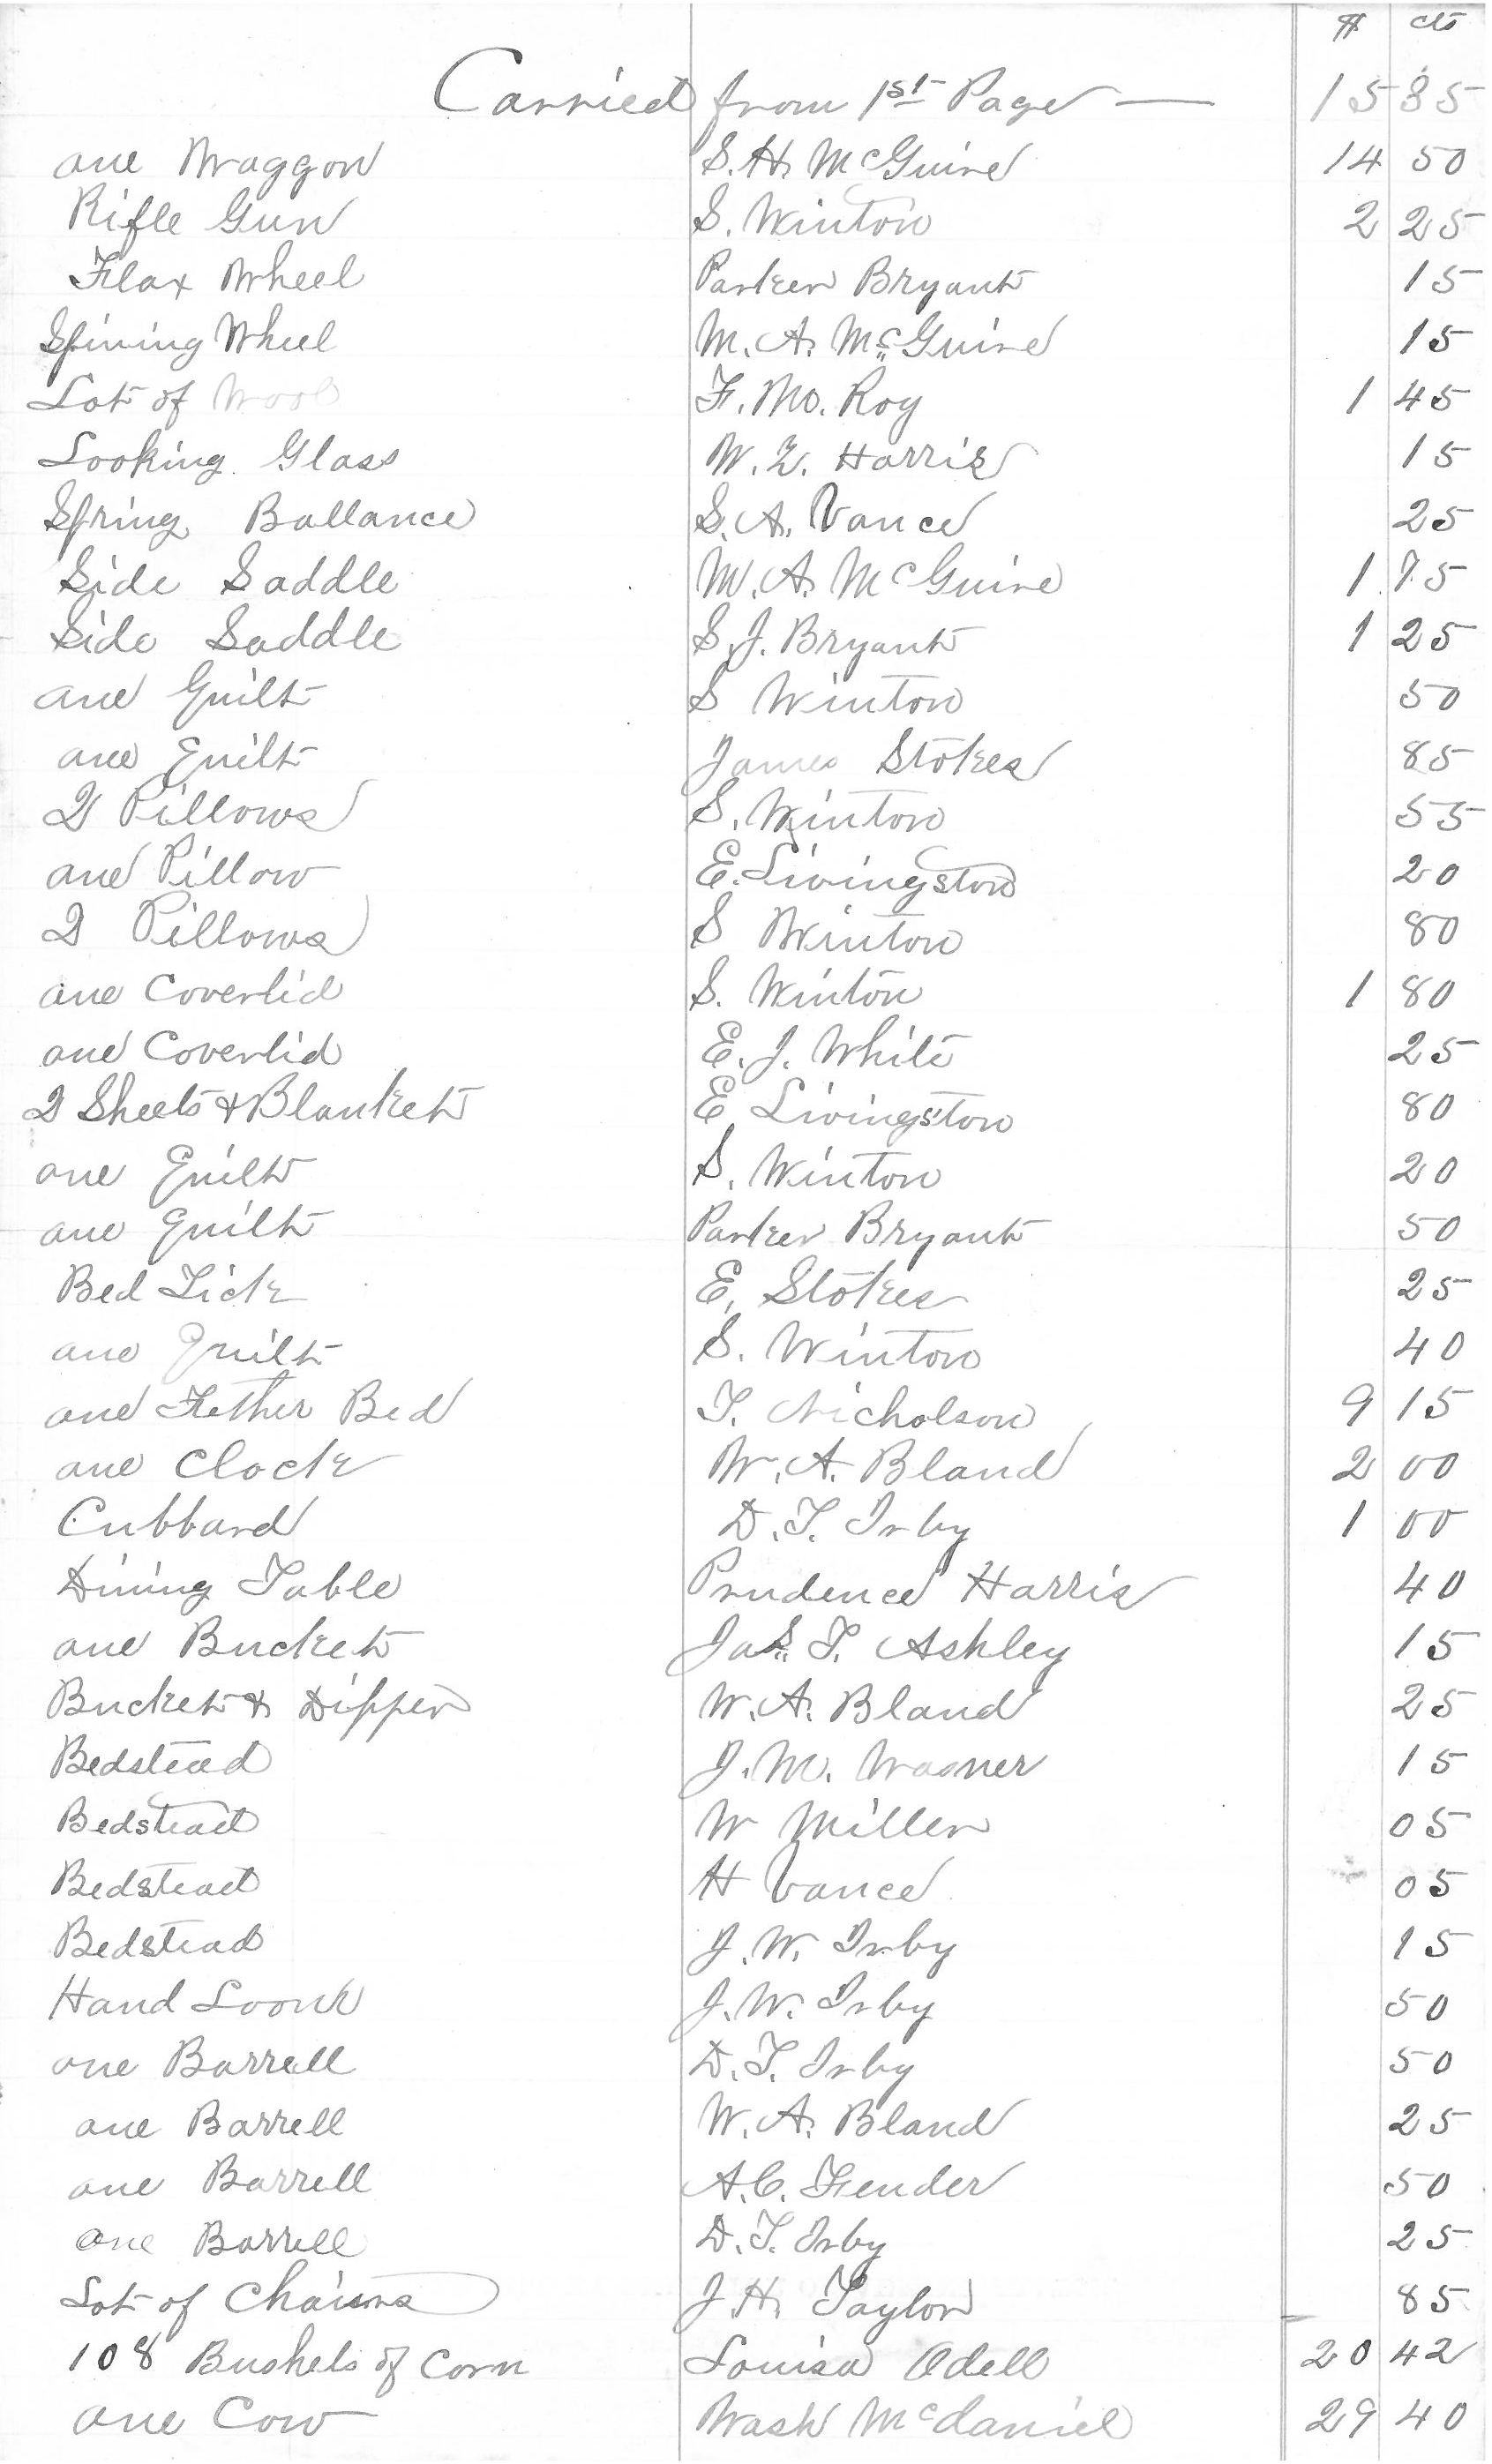 $ cts
Carried from 1st Page — 15 85
one Waggon S. H. McGuire 14 50
Rifle Gun S. Winton 2 25
Flax Wheel Parker Bryant 15
Spining Wheel M. A. McGuire 15
Lot of Wool F. M. Roy 1 45
Looking Glass W. E. Harris 15
Spring Ballance S. A. Vance 25
Side Saddle M. A. McGuire 1 75
Side Saddle S. J. Bryant 1 25
one Quilt S Winton 50
one Quilt James Stokes 85
2 Pillows S. Winton 55
one Pillow E. Livingston 20
2 Pillows S Winton 80
one Coverlid S. Winton 1 80
one Coverlid E. J. White 25
2 Sheets & Blanket E Livingston 80
one Quilt S. Winton 20
one Quilt Parker Bryant 50
Bed Tick E. Stokes 25
one Quilt S. Winton 40
one Fether Bed T. Nicholson 9 15
one Clock W. A. Bland 2 00
Cubbard D. T. Irby 1 00
Dining Table Prudence Harris 40
one Bucket Jas. T. Ashley 15
Bucket & Dipper W. A. Bland 25
Bedstead J. M. Wasner 15
Bedstead W Miller 05
Bedstead H Vance 05
Bedstead J. W. Irby 15
Hand Loom J. W. Irby 50
one Barrell D. T. Irby 50
one Barrell W. A. Bland 25
one Barrell A. C. Fender 50
one Barrell D. T. Irby 25
Lot of Chairs J. H. Taylor 85
108 Bushels of Corn Louisa Odell 20 42
one Cow Wash McDaniel 29 40